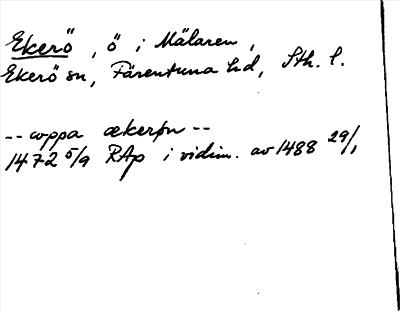 Ekerö, ö i Mälaren,
Ekerö sn, Färentuna hd, Sth. l.
-- wppa ækerøn --
1472 5/9 RAp i vidim. av 1488 29/1